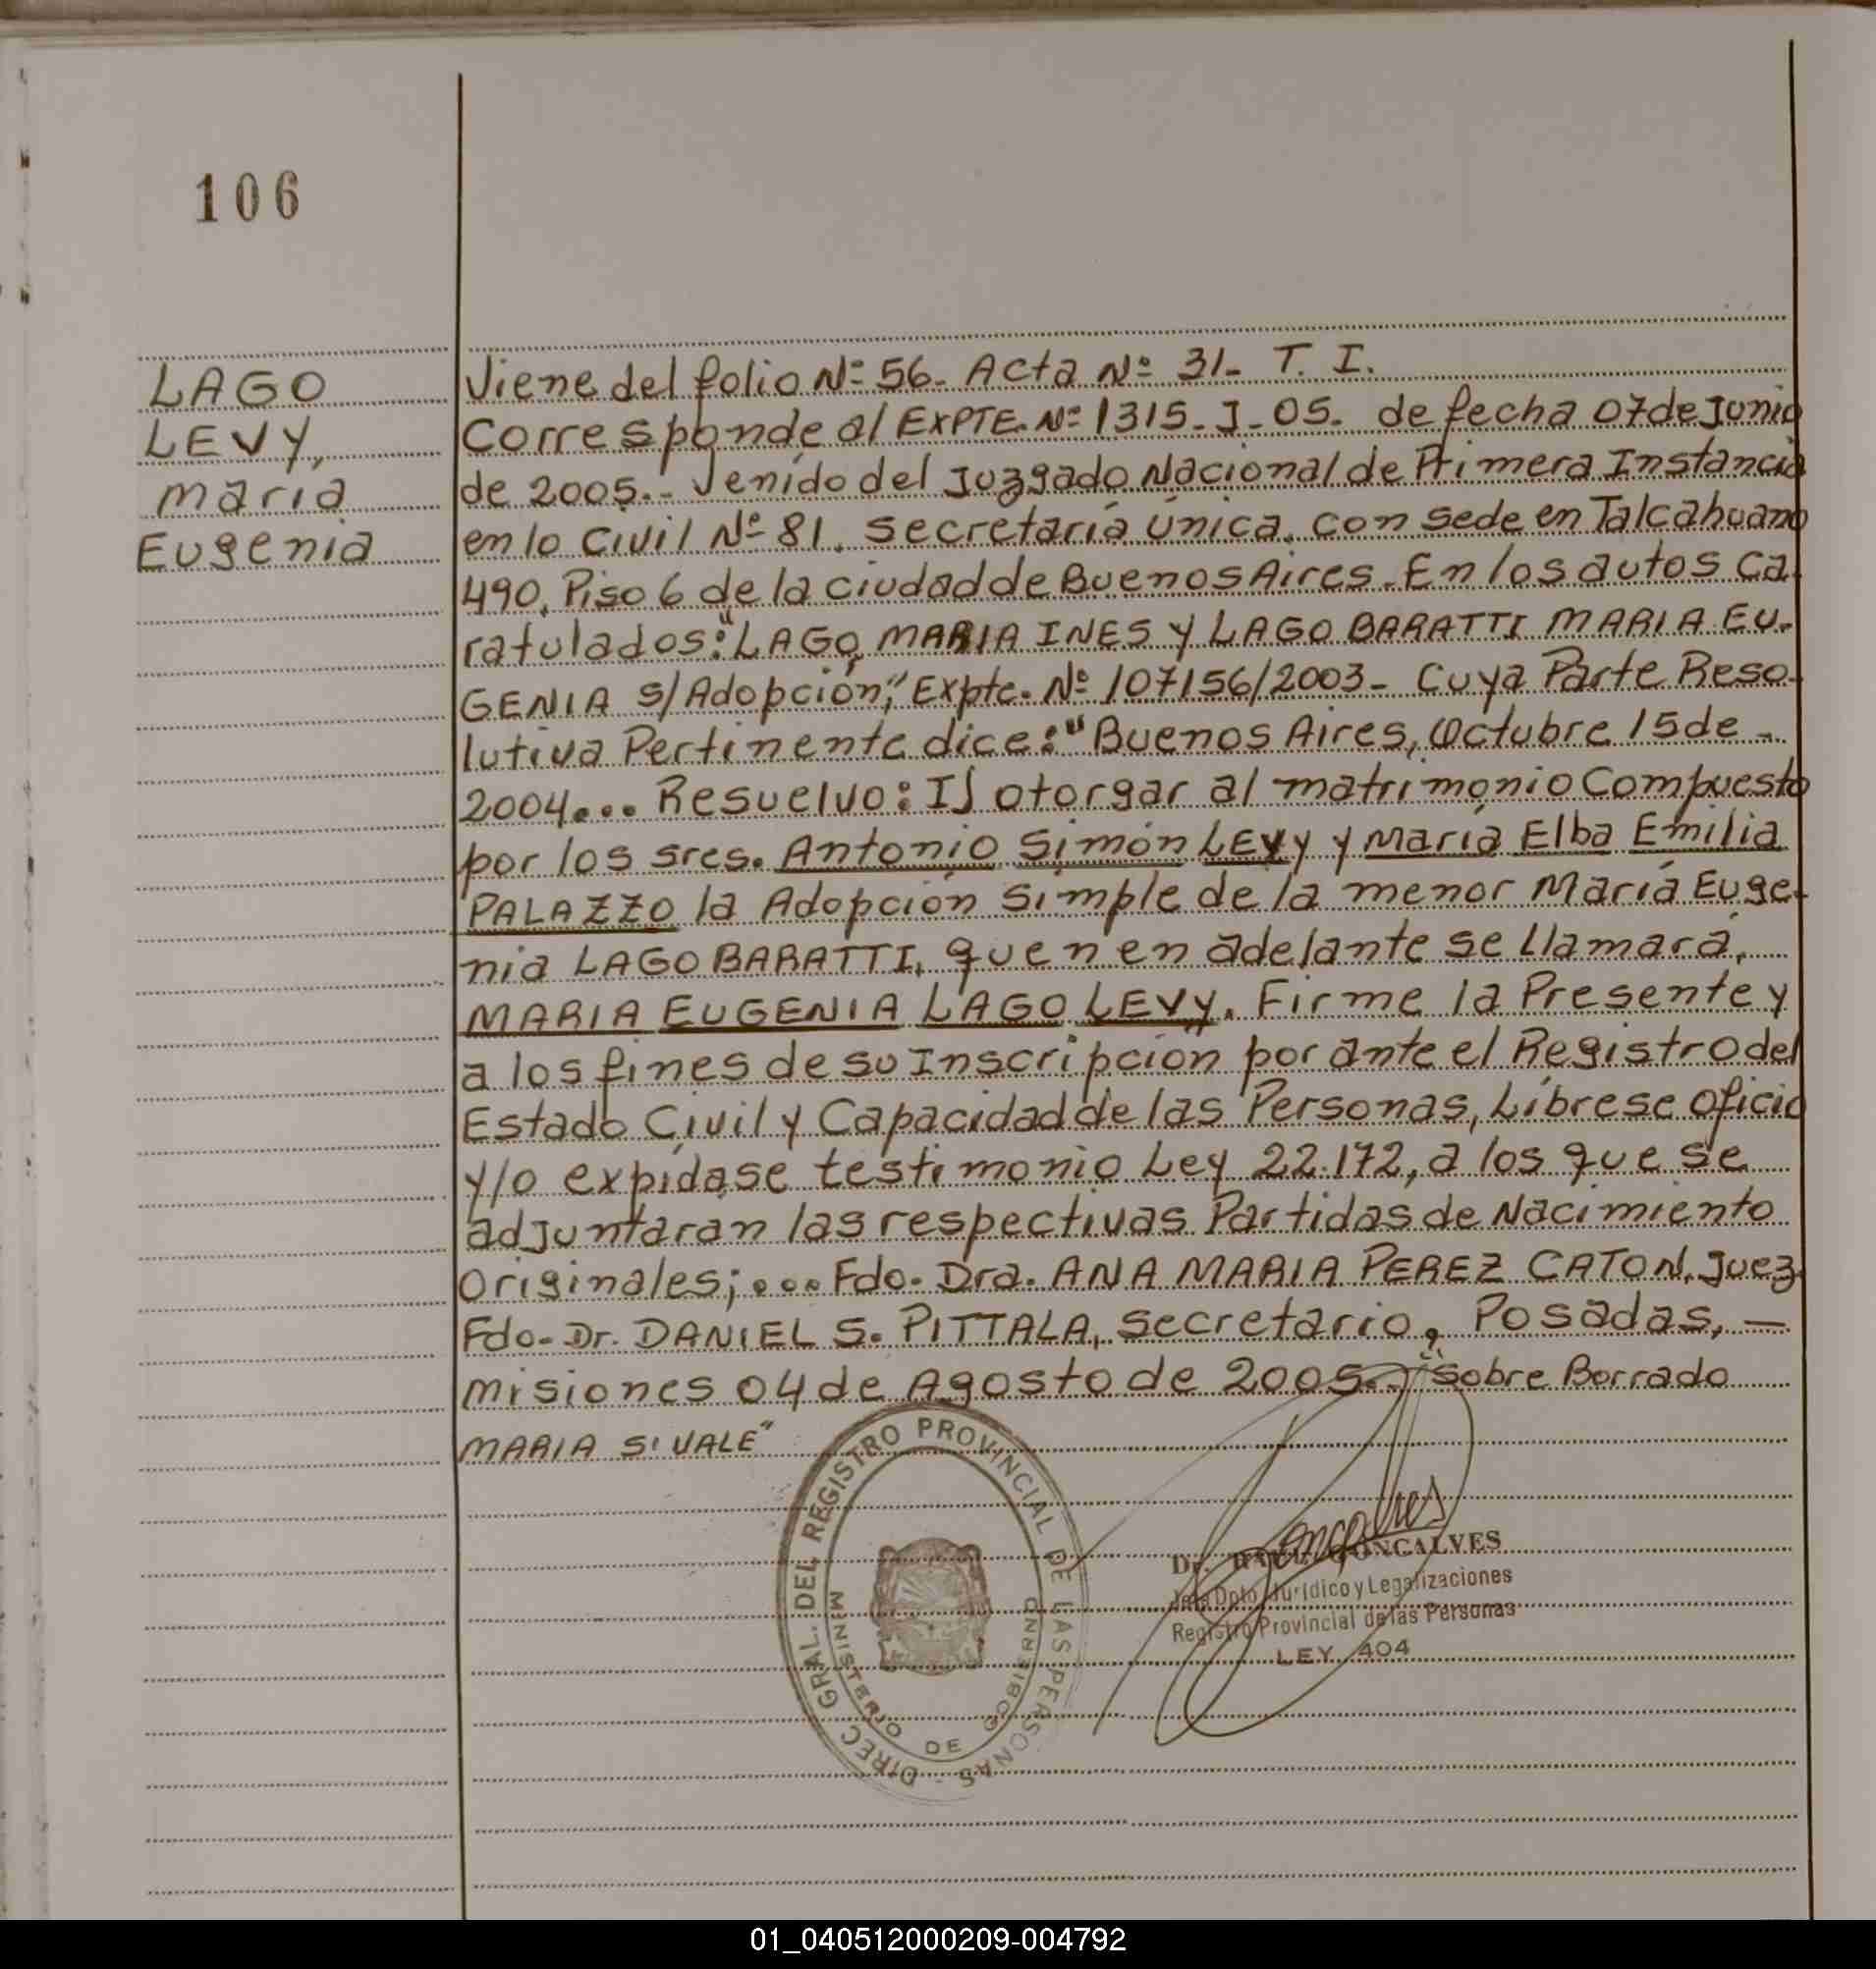 106
LAGO
LEVY,
María
Eugenia
Viene del folio Nº 56- Acta Nº 31- T. I.
Corresponde al EXPTE. Nº 1315-J-05- de fecha 07 de Junio
de 2005.- Venído del Juzgado Nacional de Primera Instancia
en lo Civil Nº 81, Secretaría Única, con sede en Talcahuano
490, Piso 6 de la ciudad de Buenos Aires. En los autos ca-
ratulados: "LAGO, MARIA INES y LAGO BARATTI MARIA EU-
GENIA s/Adopción," Expte. Nº 107156/2003- Cuya Parte Reso-
lutiva Pertinente dice: "Buenos Aires, Octubre 15 de -
2004... Resuelvo: I) otorgar al matrimonio Compuesto
por los sres. Antonio Simón LEVY y María Elba Emilia
PALAZZO la Adopción Simple de la menor María Euge-
nia LAGO BARATTI, quen en adelante se llamará,
MARIA EUGENIA LAGO LEVY. Firme la Presente y
a los fines de su Inscripción por ante el Registro del
Estado Civil y Capacidad de las Personas, Líbrese oficio
y/o expídase testimonio Ley 22.172, a los que se
adjuntaran las respectivas Partidas de Nacimiento
Originales;... Fdo. Dra. ANA MARIA PEREZ CATON, Juez.
Fdo- Dr. DANIEL S. PITTALA, Secretario, Posadas, -
Misiones 04 de Agosto de 2005.- "Sobre Borrado
MARIA SI VALE"
DIREC. GRAL. DEL REGISTRO PROVINCIAL DE LAS PERSONAS -
MINISTERIO DE GOBIERNO
Dr. GONCALVES
Jefe Dpto. Jurídico y Legalizaciones
Registro Provincial de las Personas
LEY 404
01_040512000209-004792